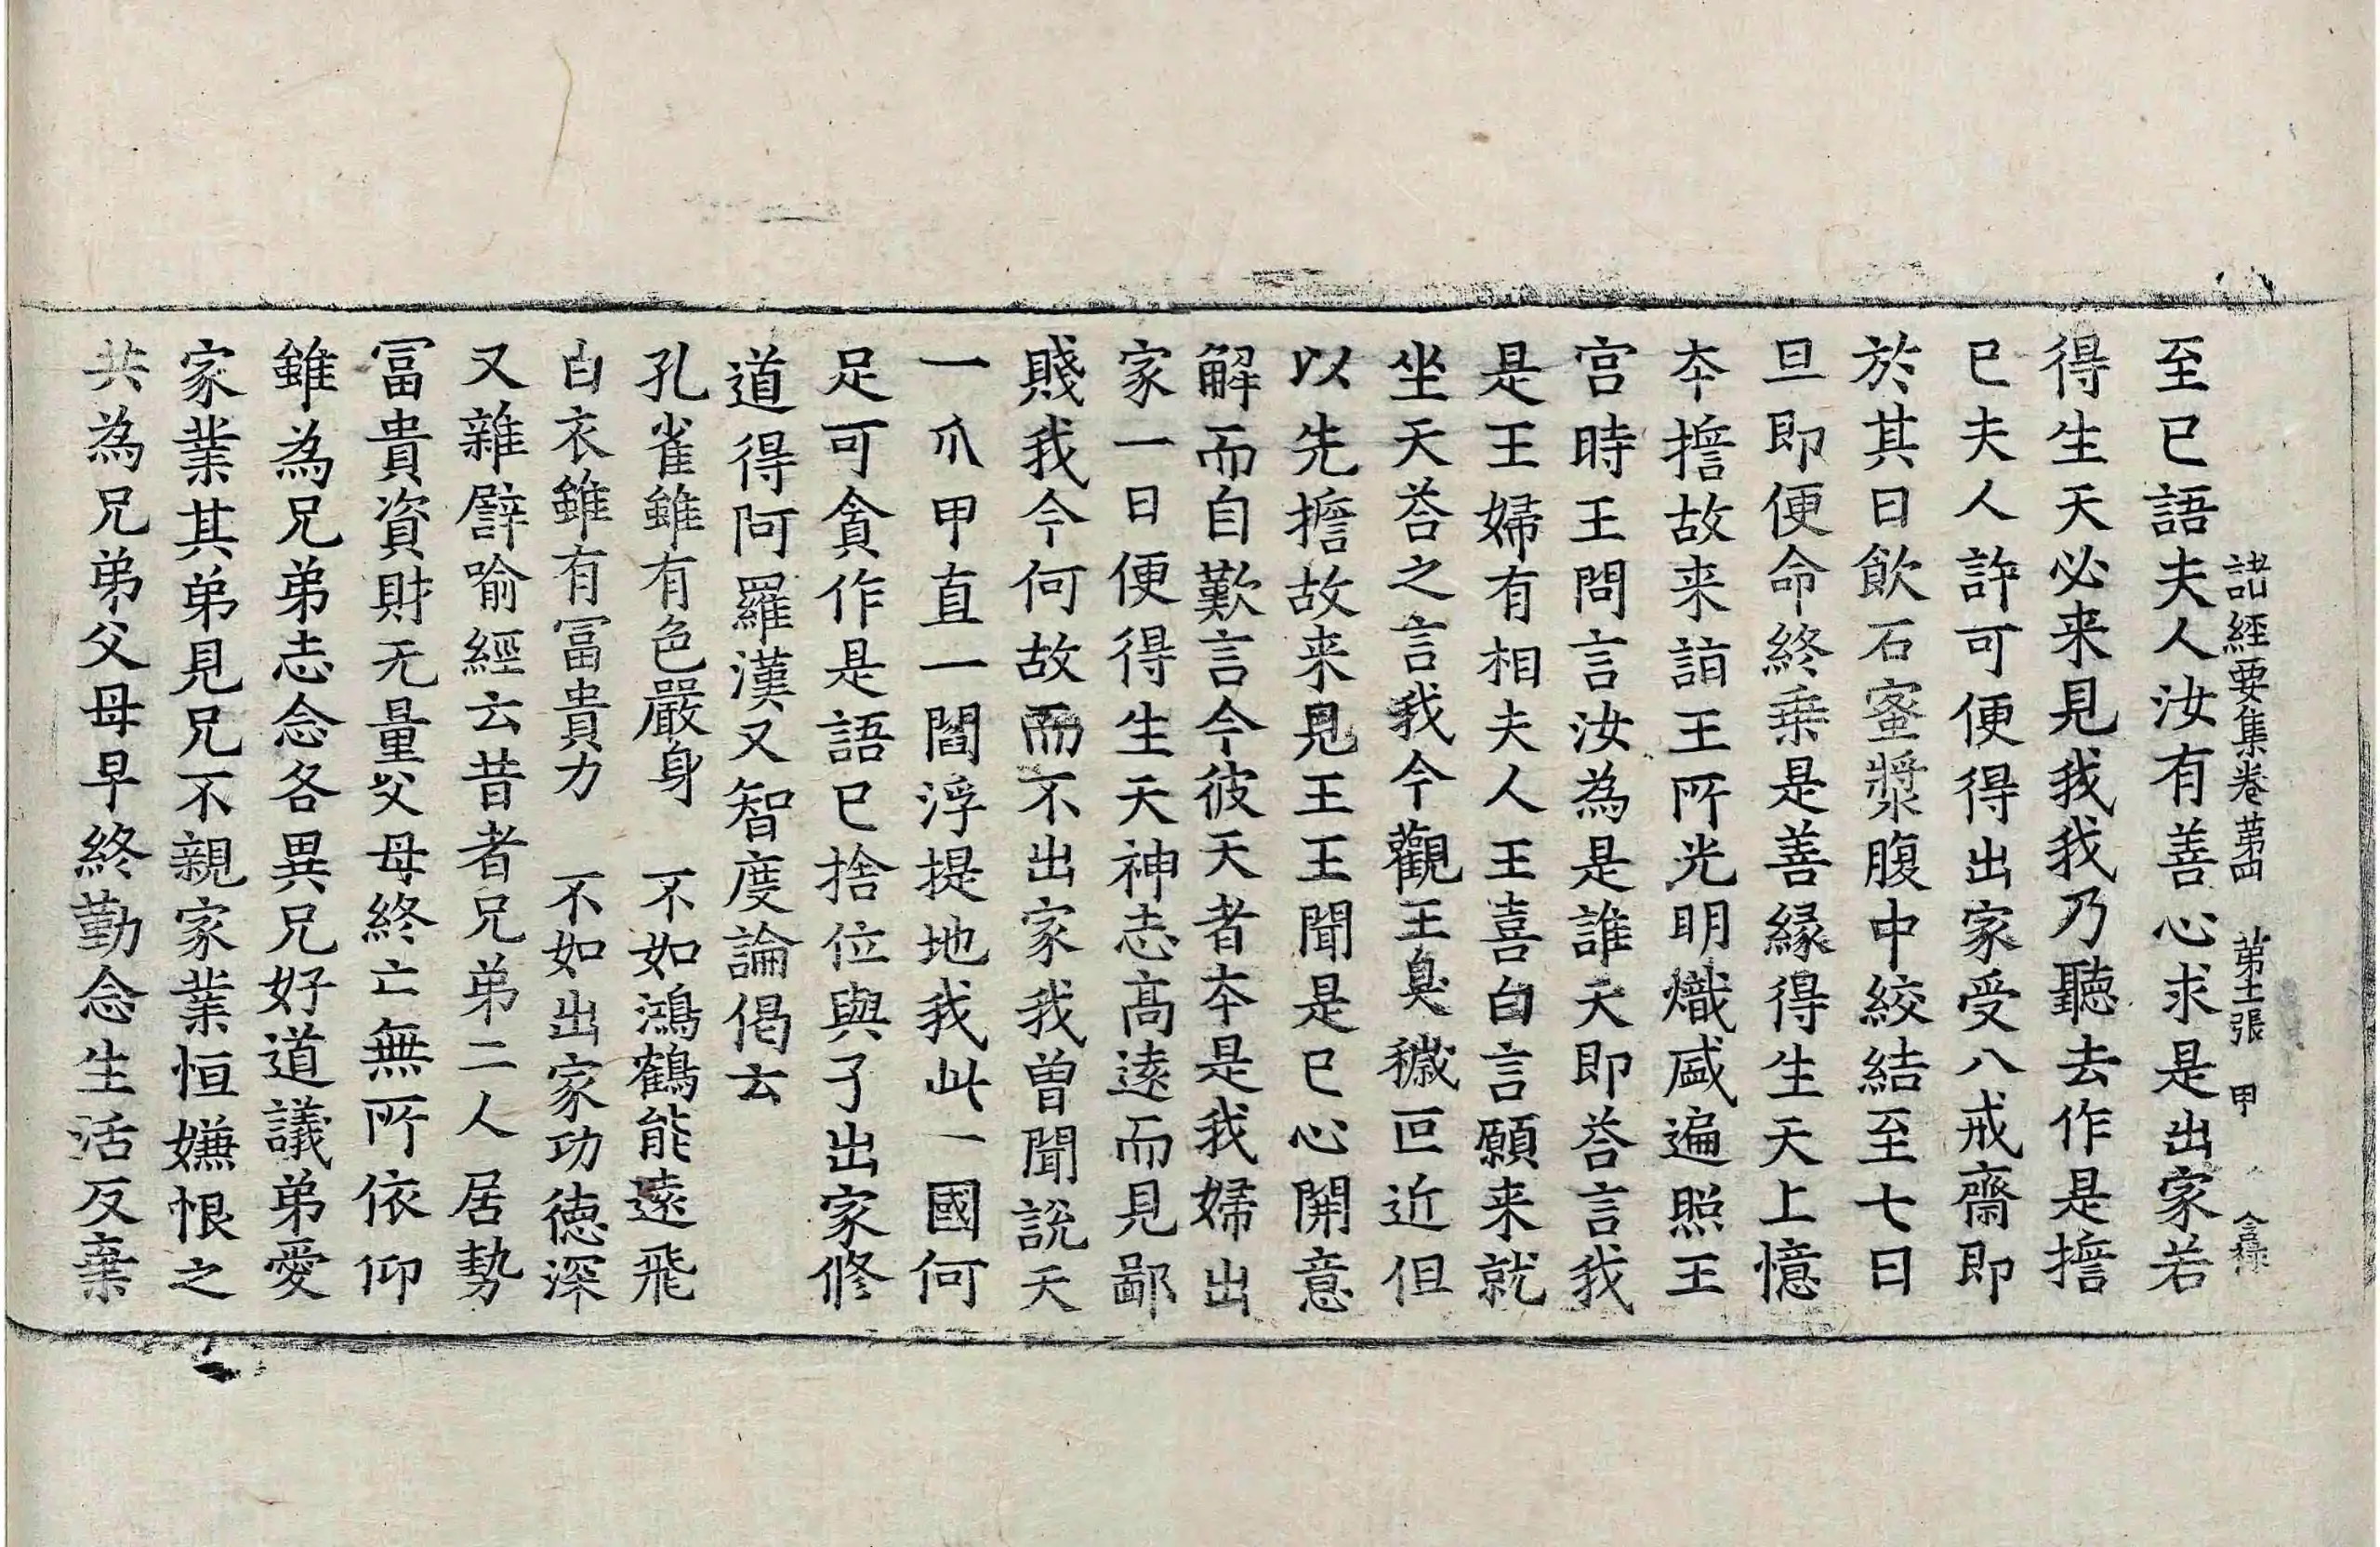 諸經要集卷苐四 苐十二張 甲
至已語夫人汝有善心求是出家若
得生天必来見我我乃聽去作是擔
已夫人許可便得出家受八戒齋即
於其日飲石蜜漿腹中絞結至七日
旦即便命終乗是善縁得生天上憶
夲擔故来詣王所光明熾盛遍照王
宫時王問言汝為是誰天即荅言我
是王婦有相夫人王喜白言願来就
坐天荅之言我今觀王臭穢叵近但
以先擔故来見王王聞是已心開意
解而自歎言今彼天者夲是我婦出
家一日便得生天神志髙遠而見鄙
賤我今何故而不出家我曽聞説天
一爪甲直一閻浮提地我此一國何
足可貪作是語已捨位與子出家修
道得阿羅漢又智度論偈云
孔雀雖有色嚴身 不如鴻鶴能遠飛
白衣雖有冨貴力 不如出家功徳深
又雜譬喻經云昔者兄弟二人居勢
冨貴資財无量父母終亡無所依仰
雖為兄弟志念各異兄好道議弟愛
家業其弟見兄不親家業恒嫌恨之
共為兄弟父母早終勤念生活反棄